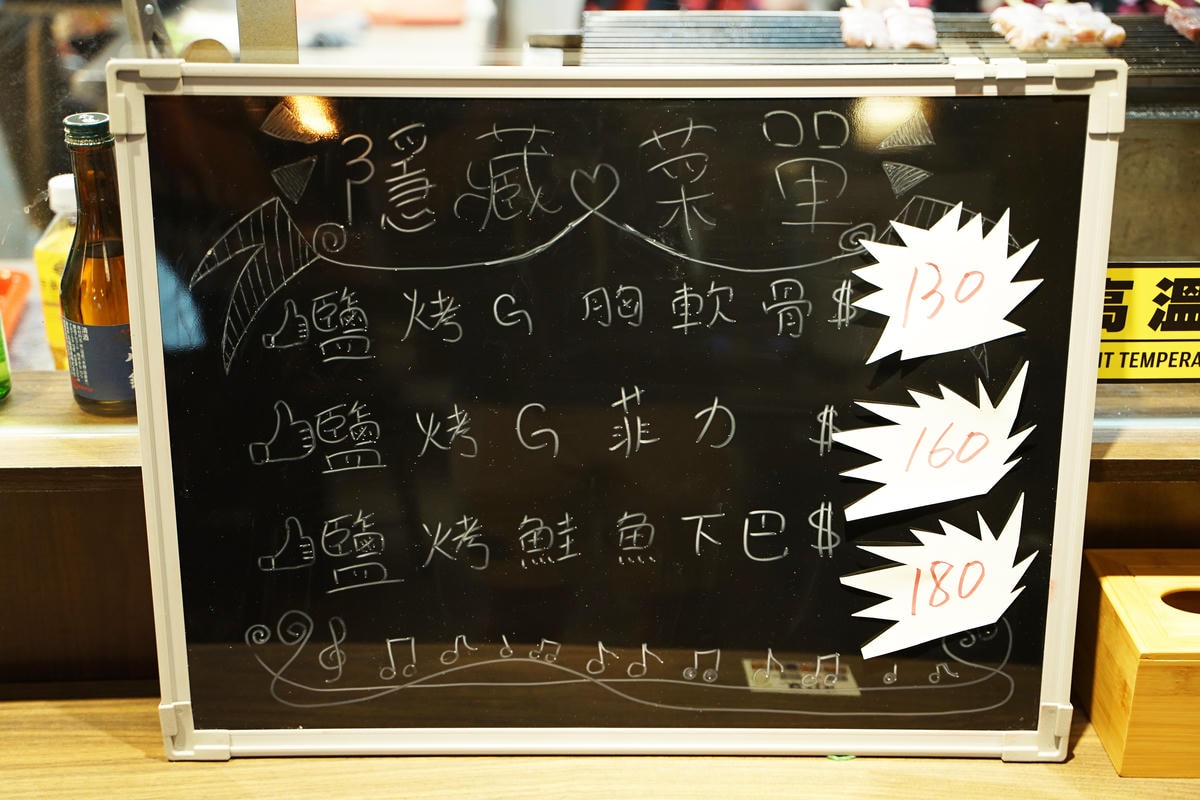 隱藏菜單
鹽烤G胸軟骨$130
鹽烤G菲力 $160
鹽烤鮭魚下巴$180
高溫
IT TEMPERA